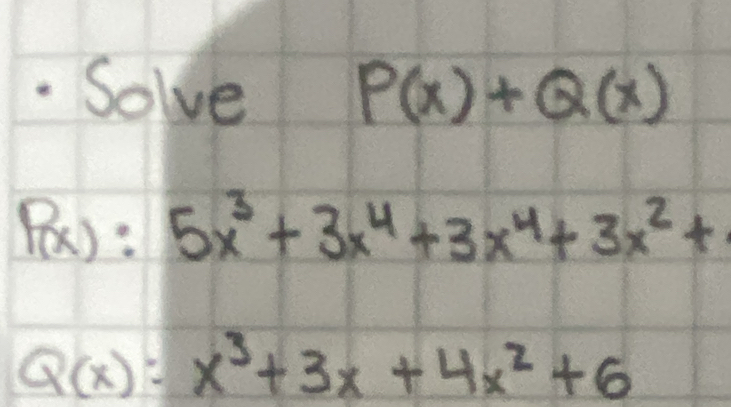 · Solve P(x) + Q(x)
P(x): 5x³ + 3x⁴ + 3x⁴ + 3x² +
Q(x): x³ + 3x + 4x² + 6